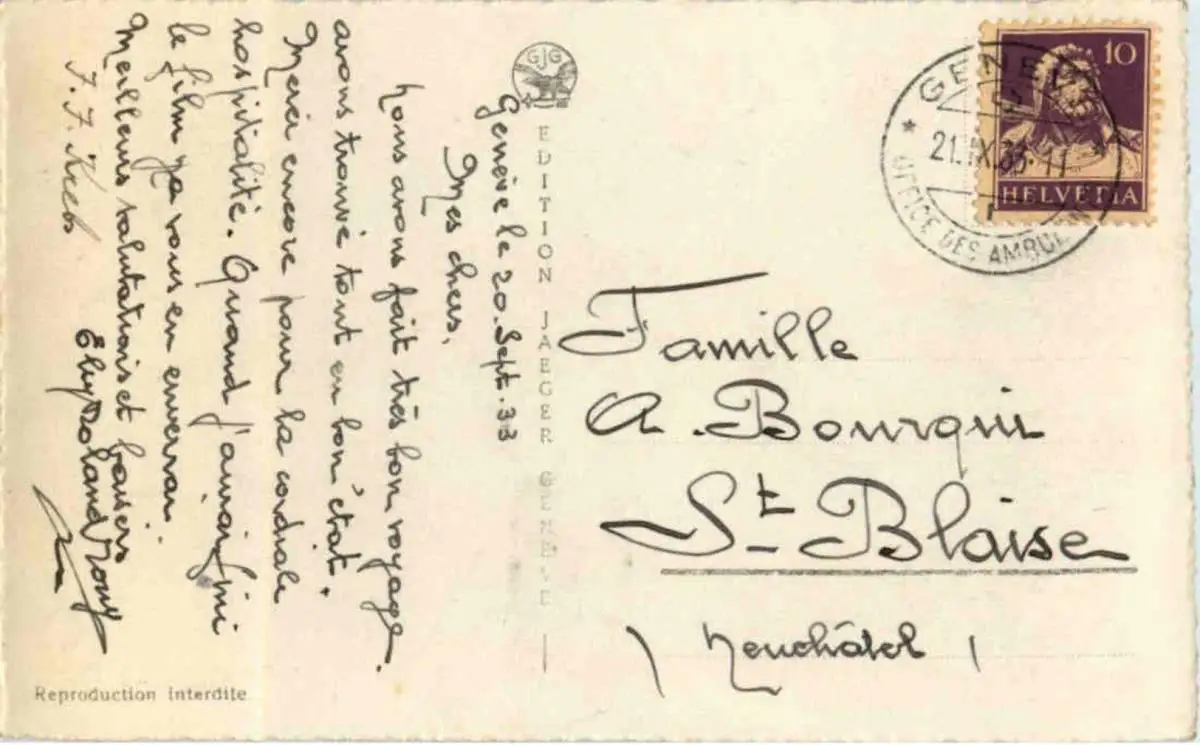 Genève le 20. Sept. 33
Mes chers.
Nous avons fait très bon voyage.
avons trouvé tout en bon état.
Merci encore pour la cordiale
hospitalité. Quand j'aurai fini
le film ça vous en enverrai.
Meilleurs salutations et baisers
Elly Roland
GJG
EDITION JAEGER GENEVE
Reproduction interdite
10
HELVETIA
GENEVE
21.IX.33.11
OFFICE DES AMBULAN
Famille
A. Bourquin
St. Blaise
(Neuchâtel)